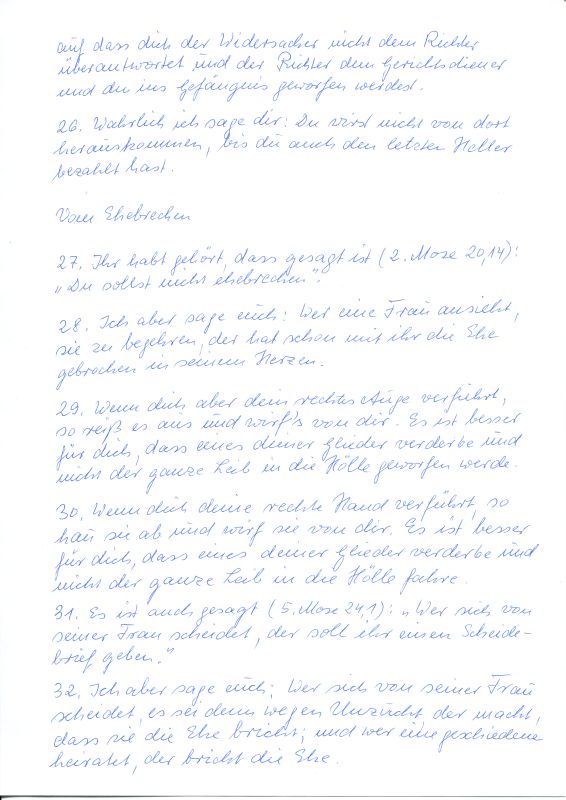 auf dass dich der Widersacher nicht dem Richter
überantwortet und der Richter dem Gerichtsdiener
und du ins Gefängnis geworfen werdest.
26. Wahrlich ich sage dir: Du wirst nicht von dort
herauskommen, bis du auch den letzten Heller
bezahlt hast.
Vom Ehebrechen
27. Ihr habt gehört, dass gesagt ist (2. Mose 20,14):
„Du sollst nicht ehebrechen“.
28. Ich aber sage euch: Wer eine Frau ansieht,
sie zu begehren, der hat schon mit ihr die Ehe
gebrochen in seinem Herzen.
29. Wenn dich aber dein rechtes Auge verführt,
so reiß es aus und wirf's von dir. Es ist besser
für dich, dass eines deiner Glieder verderbe und
nicht der ganze Leib in die Hölle geworfen werde.
30. Wenn dich deine rechte Hand verführt, so
hau sie ab und wirf sie von dir. Es ist besser
für dich, dass eines deiner Glieder verderbe und
nicht der ganze Leib in die Hölle fahre.
31. Es ist auch gesagt (5. Mose 24,1): „Wer sich von
seiner Frau scheidet, der soll ihr einen Scheide-
brief geben.“
32. Ich aber sage euch: Wer sich von seiner Frau
scheidet, es sei denn wegen Unzucht, der macht,
dass sie die Ehe bricht; und wer eine geschiedene
heiratet, der bricht die Ehe.